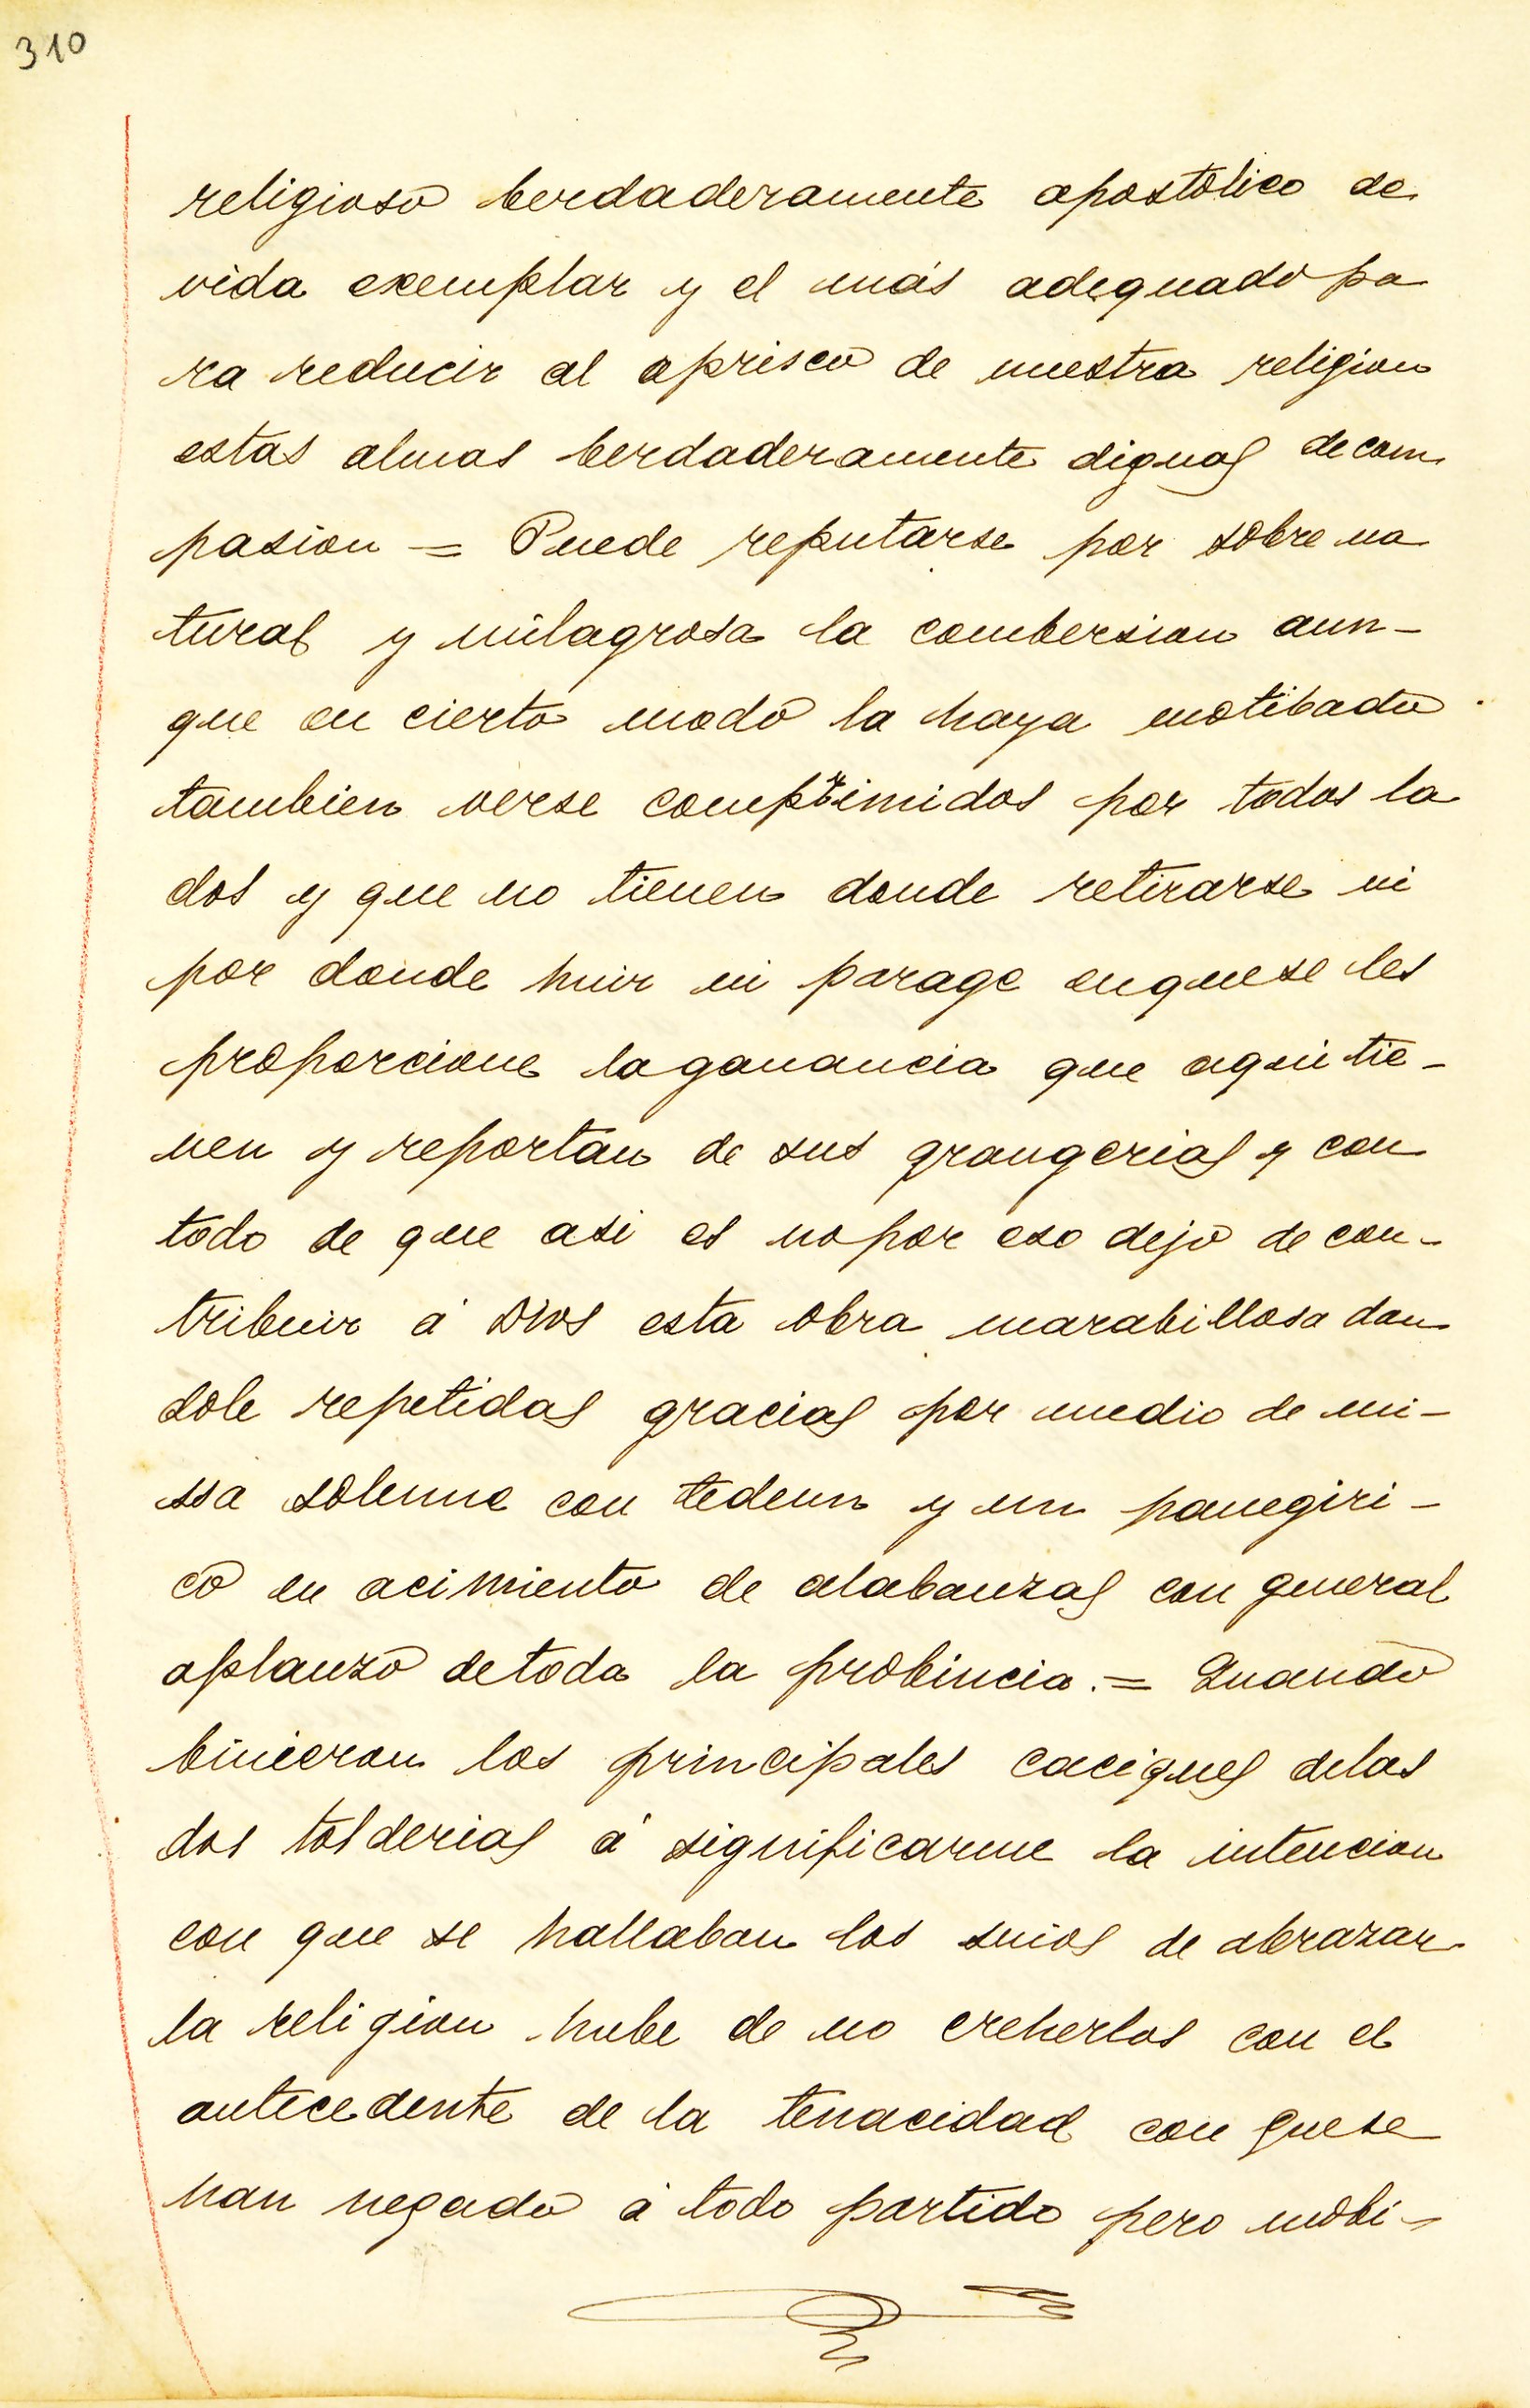 310
religioso berdaderamente apostolico de
vida exemplar y el más adequado pa
ra reducir al aprisco de nuestra religion
estas almas berdaderamente dignas de com
pasion = Puede reputarse por sobre na
tural y milagrosa la combersion aun-
que en cierto modo la haya motibado
tambien verse comprimidos por todos la
dos y que no tienen donde retirarse ni
por donde huir ni parage enquese les
proporcione laganancia que aqui tie-
nen y reportan de sus grangerias y con
todo de que asi es nopor eso dejo de con-
tribuir á Dios esta obra marabillosa dan
dole repetidas gracias por medio de mi-
ssa solemne con tedeun y un panegiri-
co en acimiento de alabanzas con general
aplauzo detoda la probincia.= Quando
binieron los principales caciques delas
dos tolderias á significarme la intencion
con que se hallaban los suios de abrazar
la religion hube de no creherlos con el
antecedente de la tenacidad con quese
han negado á todo partido pero mobi-